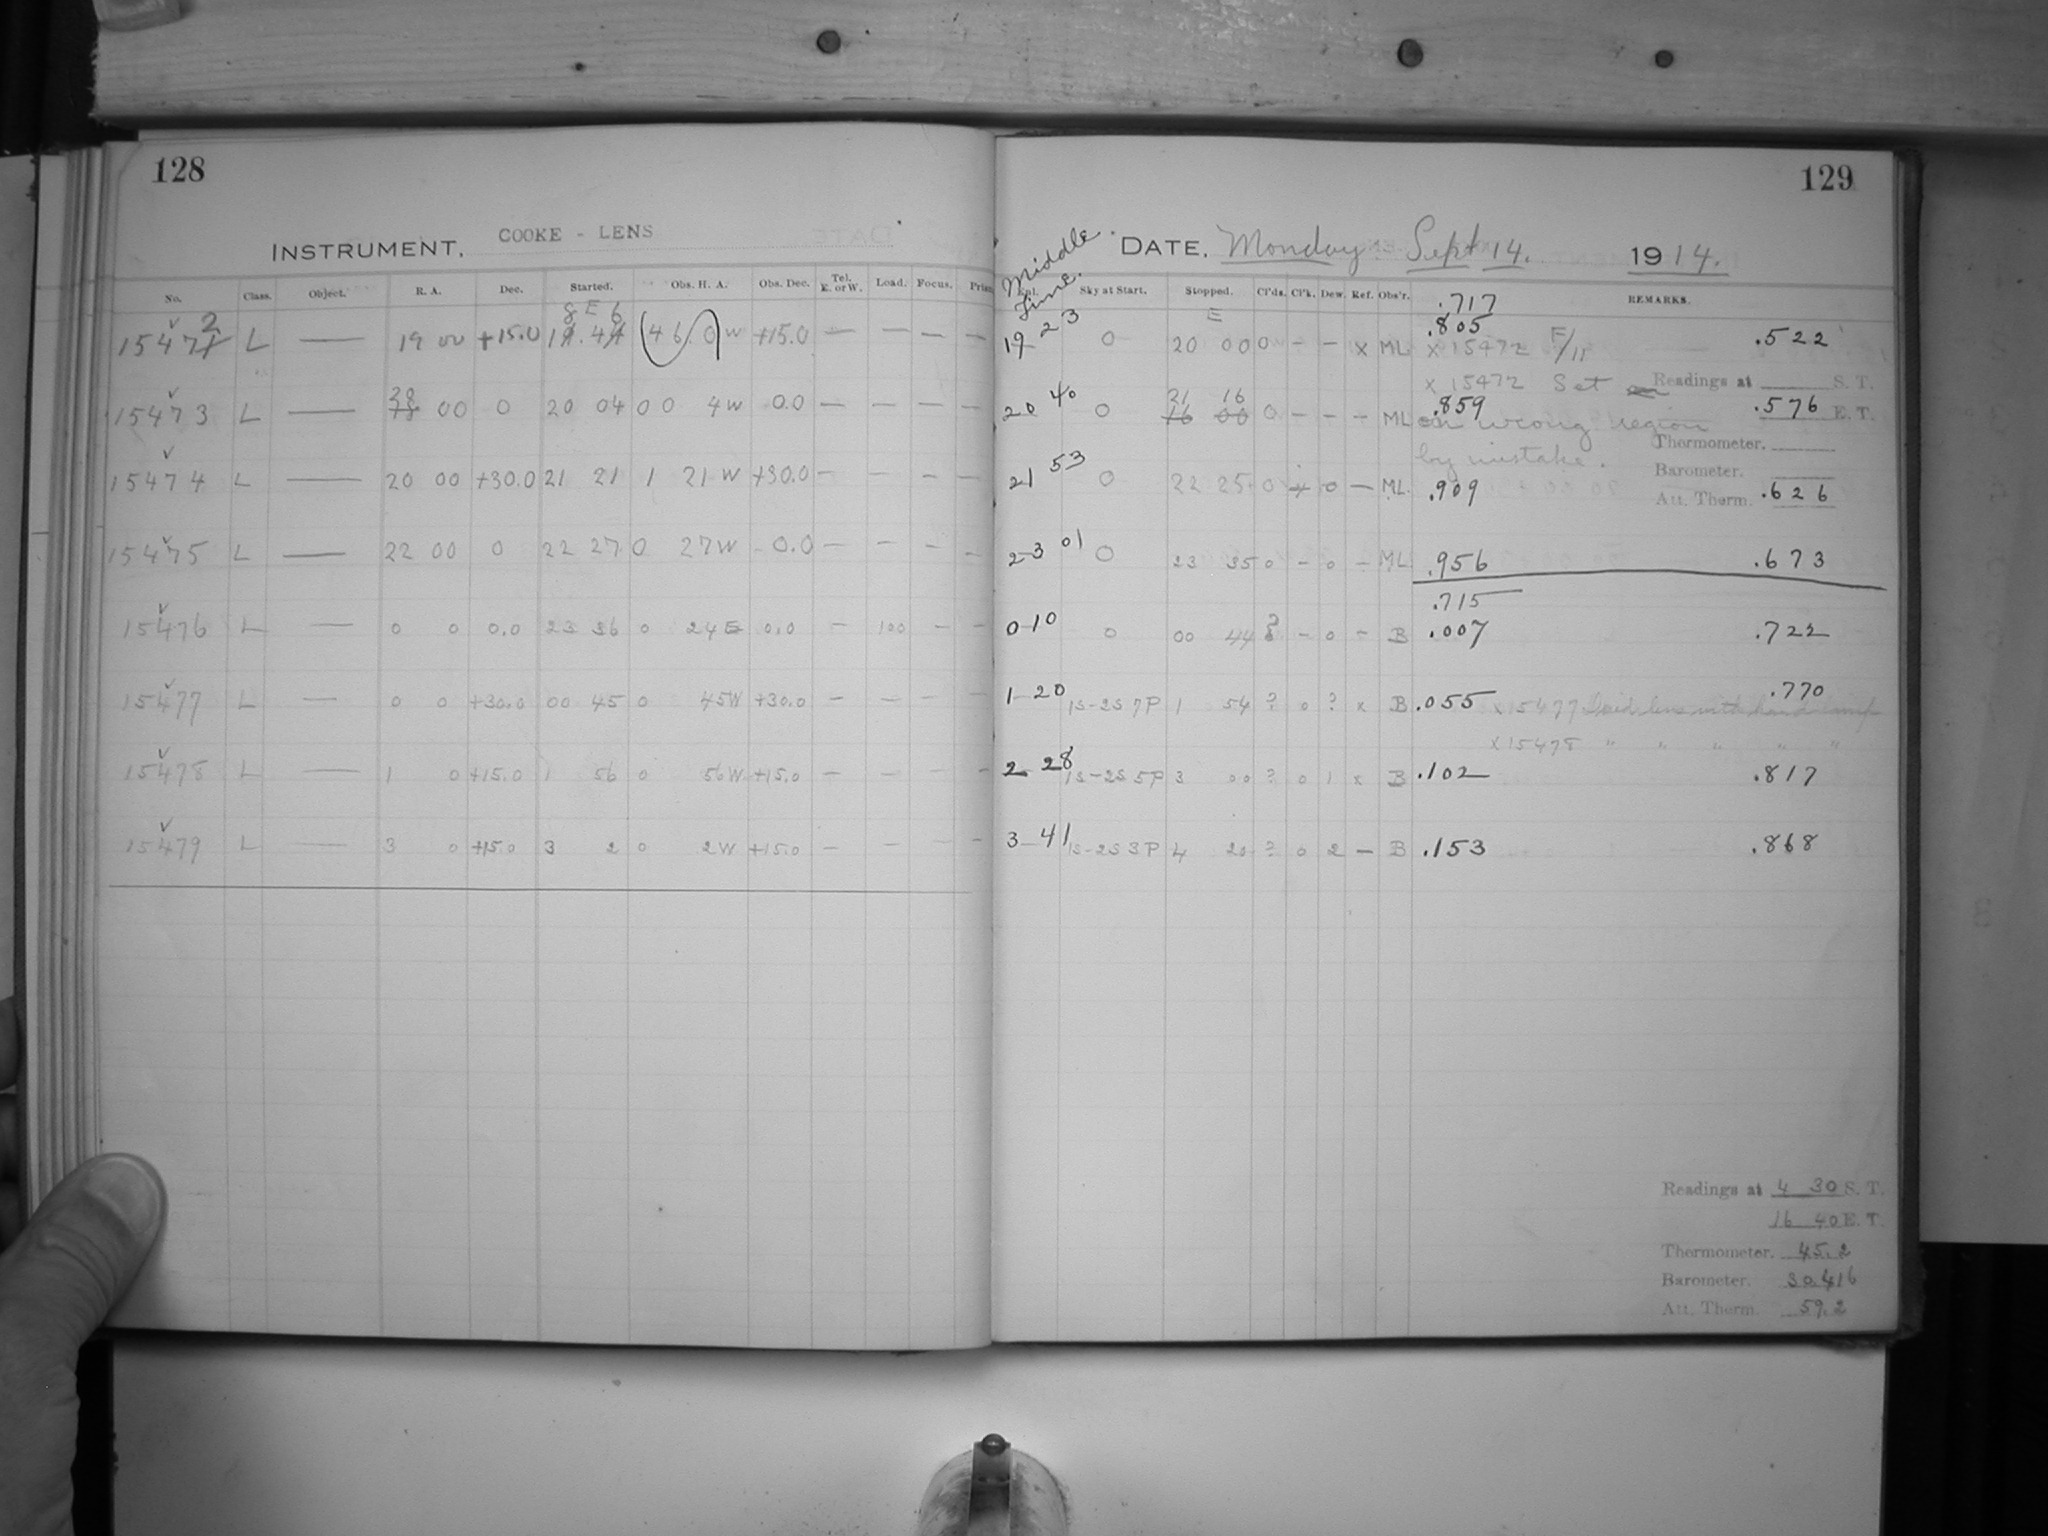 128
INSTRUMENT. COOKE - LENS
No. Class. Object. R. A. Dec. Started. Obs. H. A. Obs. Dec. Tel. E. or W. Load. Focus.
15472 L — 19 00 +15.0 18 46 (46 0) W +15.0 — — — —
15473 L — 20 00 0 20 04 00 4W 0.0 — — — —
15474 L — 20 00 +30.0 21 21 1 21 W +30.0 — — — —
15475 L — 22 00 0 22 27 0 27W 0.0 — — — —
15476 L — 0 0 0.0 23 36 0 24 E 0.0 — 100 — —
15477 L — 0 0 +30.0 00 45 0 45W +30.0 — — — —
15478 L — 1 0 +15.0 1 56 0 56W +15.0 — — — —
15479 L — 3 0 +15.0 3 2 0 2W +15.0 — — — —
129
DATE. Monday Sept 14. 1914.
Middle Time.
Sky at Start. Stopped. Cl'ds. Cl'k. Dew. Ref. Obs'r. REMARKS.
.717
.805
19 23 0 20 00 0 — — x ML x 15472 F/11 .522
x 15472 Set
Readings at S. T.
20 40 0 21 16 0 — — — ML .859 .576 E. T.
on wrong region
Thermometer.
by mistake.
Barometer.
21 53 0 22 25 0 0 — ML .909 Att. Therm. .626
23 01 0 23 35 0 — 0 — ML .956 .673
.715
0 10 0 00 44 ? — 0 — B .007 .722
1 20 1S-2S 7P 1 54 ? 0 ? x B .055 x 15477 lens with hand lamp .770
x 15478 " " " " "
2 28 1S-2S 5P 3 00 ? 0 1 x B .102 .817
3 41 1S-2S 3P 4 20 ? 0 2 — B .153 .868
Readings at 4 30 S. T.
16 40 E. T.
Thermometer. 45.2
Barometer. 30.416
Att. Therm. 59.2